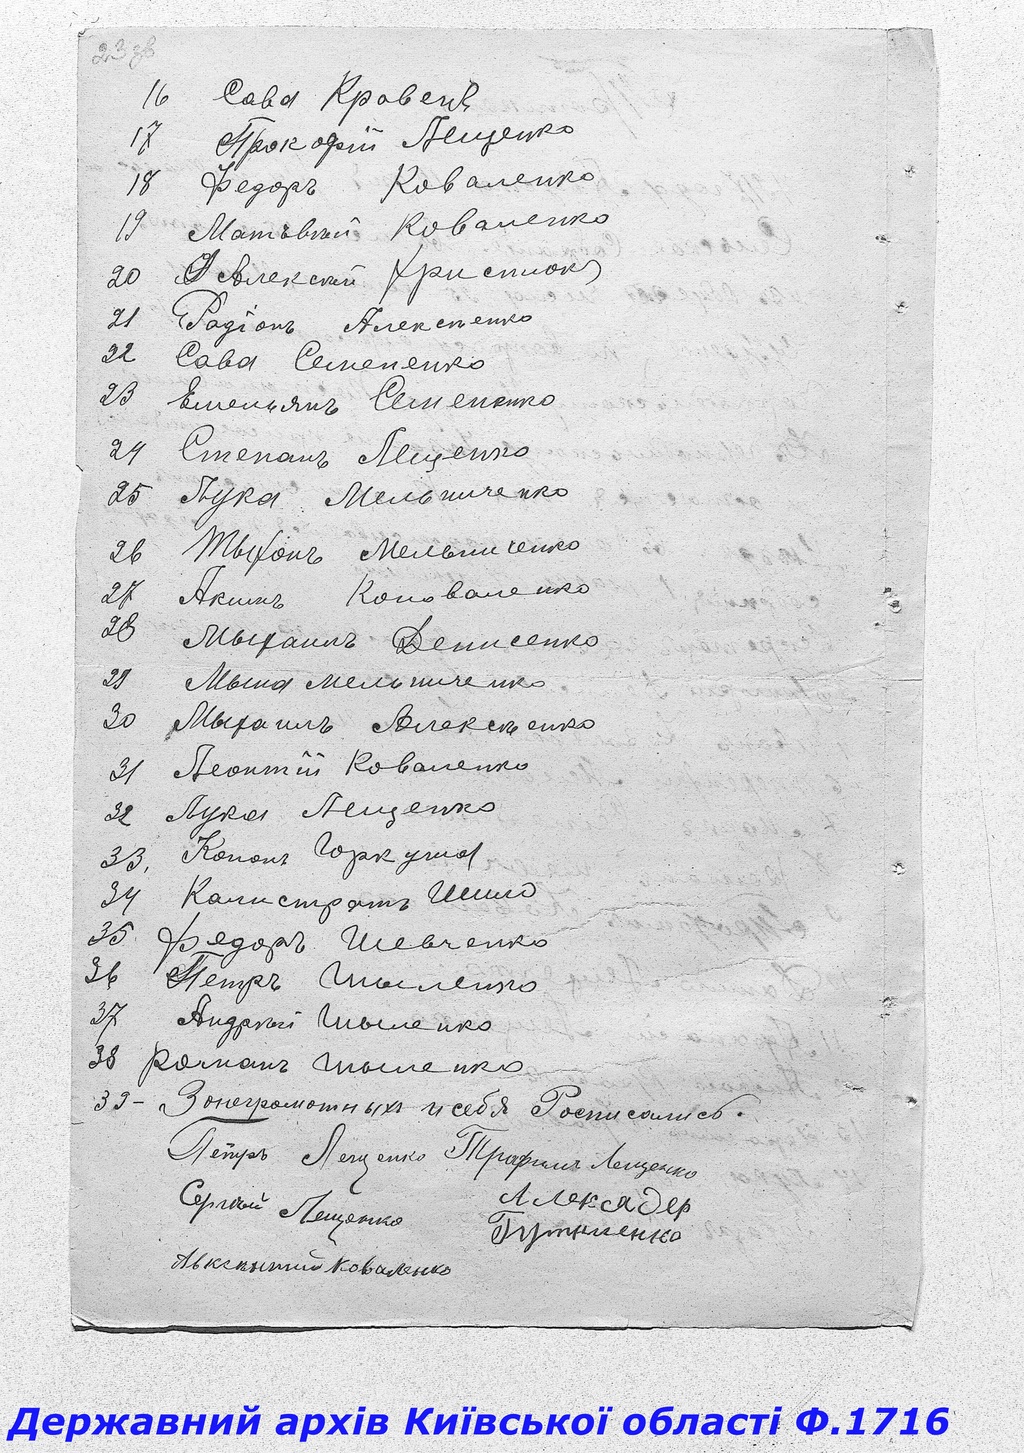 23 зв
16 Сава Кравецъ
17 Прокофій Лещенко
18 Федоръ Коваленко
19 Матъвѣй Коваленко
20 Алексѣй
21 Радіонъ Алексѣенко
22 Сава Семененко
23 Емельянъ Семененко
24 Степанъ Лещенко
25 Лука Мельниченко
26 Тыхонъ Мельниченко
27 Акимъ Коноваленко
28 Мыхаилъ Денисенко
29 Мына Мельниченко
30 Мыхаилъ Алексѣенко
31 Леонтій Коваленко
32 Лука Лещенко
33, Кононъ Горкуша
34 Калистратъ Шило
35 Федоръ Шевченко
36 Петръ Шыленко
37 Андрѣй Шыленко
38 Романъ Шыленко
39 - Занеграмотныхъ исебя Росписались.
Петръ Лещенко Трафимъ Лещенко
Сергѣй Лещенко Алексадер
Авксентий Коваленко
Державний архів Київської області Ф.1716